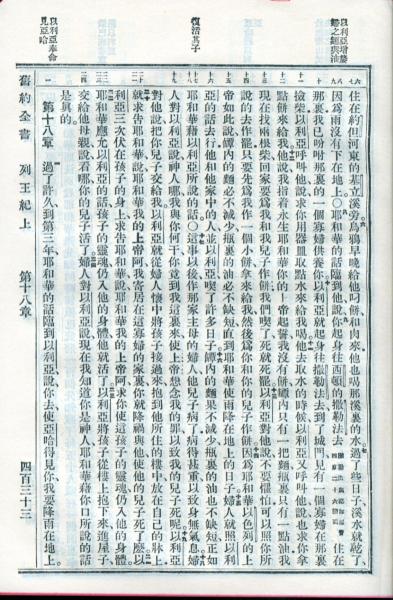 以利亞增嫠
婦之麵與油
住在約但河東的基立溪旁烏鴉早晚給他叼餅和肉來他也喝那溪裏的水過了些日子溪水就乾了
因為雨沒有下在地上○耶和華的話臨到他說你起身往西頓的撒勒法去住在
那裏我已吩咐那裏的一個寡婦供養你以利亞就起身往撒勒法去到了城門見有一個寡婦在那裏
撿柴以利亞呼叫他說求你用器皿取點水來給我喝他去取水的時候以利亞又呼叫他說也求你拿
點餅來給我他說我指着永生耶和華你的上帝起誓我沒有餅罈內只有一把麵瓶裏只有一點油我
現在找兩根柴回家要為我和我兒子作餅我們喫了死就死罷以利亞對他說不要懼怕可以照你所
說的去作罷只要先為我作一個小餅拿來給我然後為你和你的兒子作餅因為耶和華以色列的上
帝如此說罈內的麵必不減少瓶裏的油必不缺短直到耶和華使雨降在地上的日子婦人就照以利
亞的話去行他和他家中的人並以利亞喫了許多日子罈內的麵果不減少瓶裏的油也不缺短正如
復活其子
耶和華藉以利亞所說的話○這事以後作那家主母的婦人他兒子病了病得甚重以致身無氣息婦
人對以利亞說神人哪我與你何干你竟到我這裏來使上帝想念我的罪以致我的兒子死呢以利亞
對他說把你兒子交給我以利亞就從婦人懷中將孩子接過來抱到他所住的樓中放在自己的牀上
就求告耶和華說耶和華我的上帝阿我寄居在這寡婦的家裏你就降禍與他使他的兒子死了麼以
利亞三次伏在孩子的身上求告耶和華說耶和華我的上帝阿求你使這孩子的靈魂仍入他的身體
耶和華應允以利亞的話孩子的靈魂仍入他的身體他就活了以利亞將孩子從樓上抱下來進屋子
交給他母親說看哪你的兒子活了婦人對以利亞說現在我知道你是神人耶和華藉你口所說的話
是真的
以利亞奉命
見亞哈
第十八章 過了許久到第三年耶和華的話臨到以利亞說你去使亞哈得見你我要降雨在地上
舊約全書 列王紀上 第十八章 四百三十三